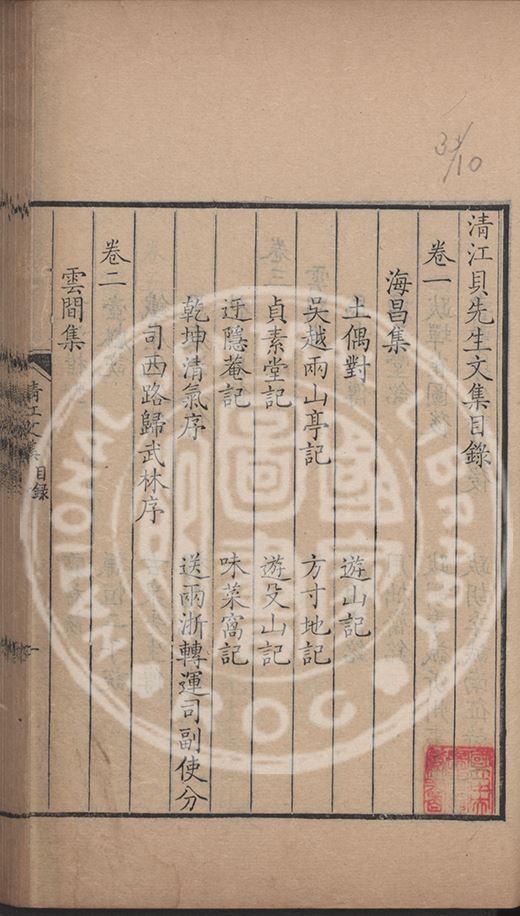 清江貝先生文集目錄
卷一
海昌集
土偶對 遊山記
吳越兩山亭記 方寸地記
貞素堂記 遊殳山記
迂隱菴記 味菜窩記
乾坤清氣序 送兩浙轉運司副使分
司西路歸武林序
卷二
雲間集
清江文集 目錄
一
31/10